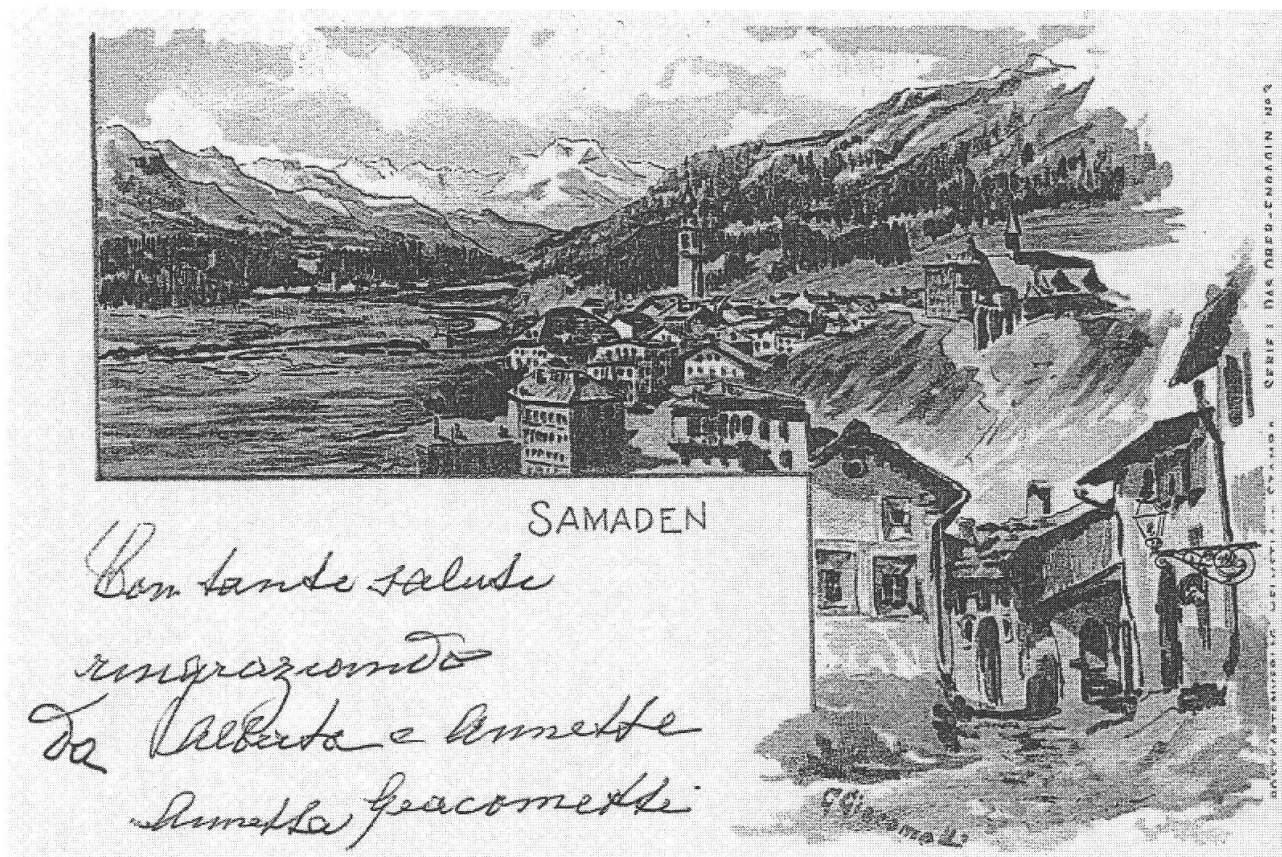 SAMADEN
Con tante saluti
ringraziando
Da Alberto e Annette
Annetta Giacometti
G Giacometti
SERIE: DAS OBER-ENGADIN No 3